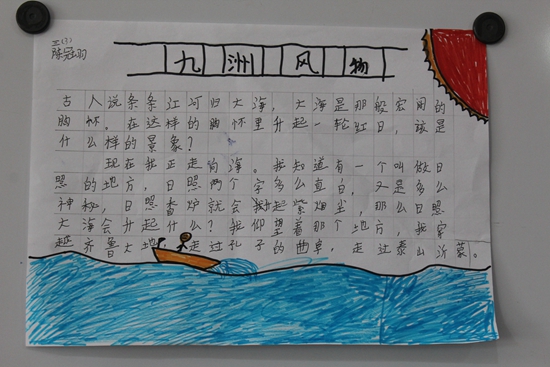 三(3)
陈冠羽
九洲风物
古人说条条江河归大海，大海是那般宏阔的
胸怀。在这样的胸怀里升起一轮红日，该是
什么样的景象？
现在我正走向海。我知道有一个叫做日
照的地方，日照两个字多么直白，又是多么
神秘，日照香炉就会升起紫烟尘，那么日照
大海会升起什么？我仰望着那个地方，我穿
越齐鲁大地，走过孔子的曲阜，走过泰山沂蒙。